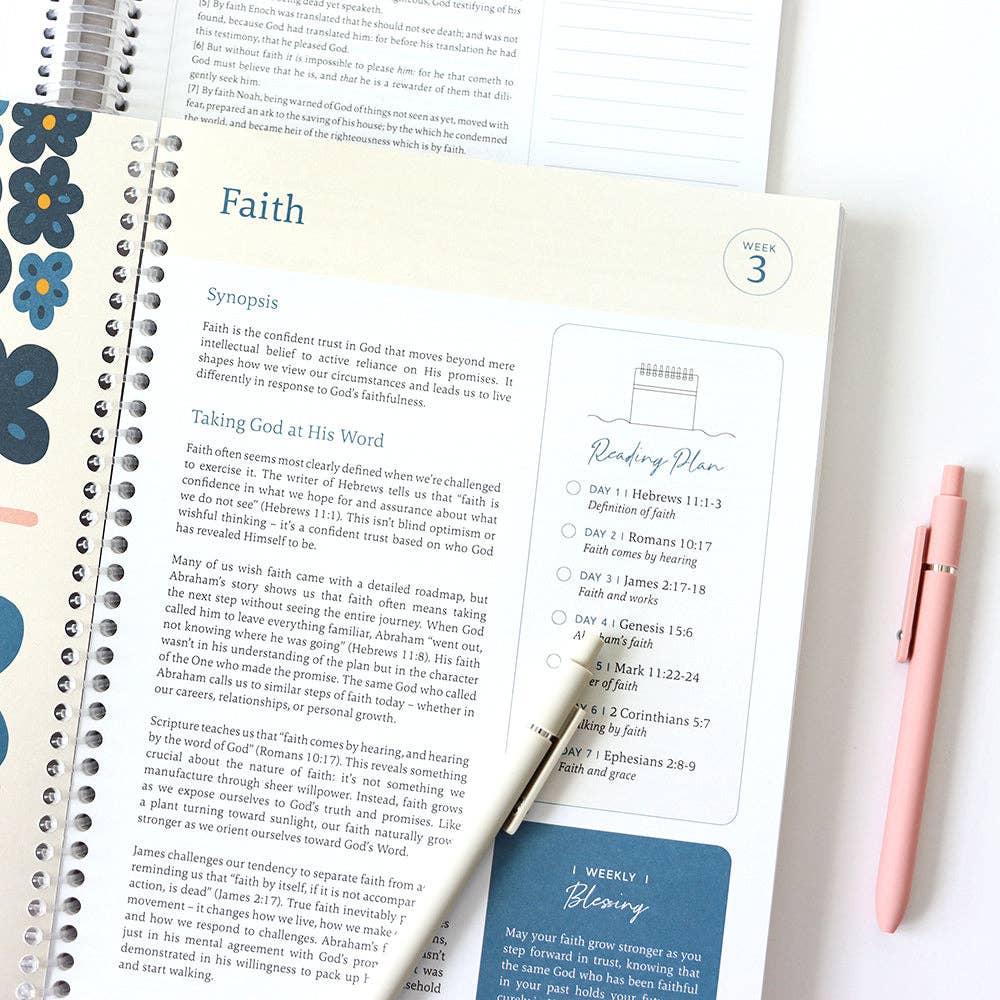 being dead yet speaketh.
God testifying of his
[5] By faith Enoch was translated that he should not see death; and was not
found, because God had translated him: for before his translation he had
this testimony, that he pleased God.
[6] But without faith it is impossible to please him: for he that cometh to
God must believe that he is, and that he is a rewarder of them that dili-
gently seek him.
[7] By faith Noah, being warned of God of things not seen as yet, moved with
fear, prepared an ark to the saving of his house; by the which he condemned
the world, and became heir of the righteousness which is by faith.
Faith
WEEK
3
Synopsis
Faith is the confident trust in God that moves beyond mere
intellectual belief to active reliance on His promises. It
shapes how we view our circumstances and leads us to live
differently in response to God's faithfulness.
Taking God at His Word
Faith often seems most clearly defined when we're challenged
to exercise it. The writer of Hebrews tells us that "faith is
confidence in what we hope for and assurance about what
we do not see" (Hebrews 11:1). This isn't blind optimism or
wishful thinking – it's a confident trust based on who God
has revealed Himself to be.
Many of us wish faith came with a detailed roadmap, but
Abraham's story shows us that faith often means taking
the next step without seeing the entire journey. When God
called him to leave everything familiar, Abraham "went out,
not knowing where he was going" (Hebrews 11:8). His faith
wasn't in his understanding of the plan but in the character
of the One who made the promise. The same God who called
Abraham calls us to similar steps of faith today – whether in
our careers, relationships, or personal growth.
Scripture teaches us that "faith comes by hearing, and hearing
by the word of God" (Romans 10:17). This reveals something
crucial about the nature of faith: it's not something we
manufacture through sheer willpower. Instead, faith grows
as we expose ourselves to God's truth and promises. Like
a plant turning toward sunlight, our faith naturally grow
stronger as we orient ourselves toward God's Word.
James challenges our tendency to separate faith from a
reminding us that "faith by itself, if it is not accompar
action, is dead" (James 2:17). True faith inevitably p
movement – it changes how we live, how we make
and how we respond to challenges. Abraham's f
just in his mental agreement with God's pror
demonstrated in his willingness to pack up
and start walking.
was
Reading Plan
DAY 1 | Hebrews 11:1-3
Definition of faith
DAY 2 | Romans 10:17
Faith comes by hearing
DAY 3 | James 2:17-18
Faith and works
DAY 4 | Genesis 15:6
Ab ham's faith
5 | Mark 11:22-24
er of faith
AY 6 | 2 Corinthians 5:7
lking by faith
DAY 7 | Ephesians 2:8-9
Faith and grace
| WEEKLY |
Blessing
May your faith grow stronger as you
step forward in trust, knowing that
the same God who has been faithful
in your past holds your